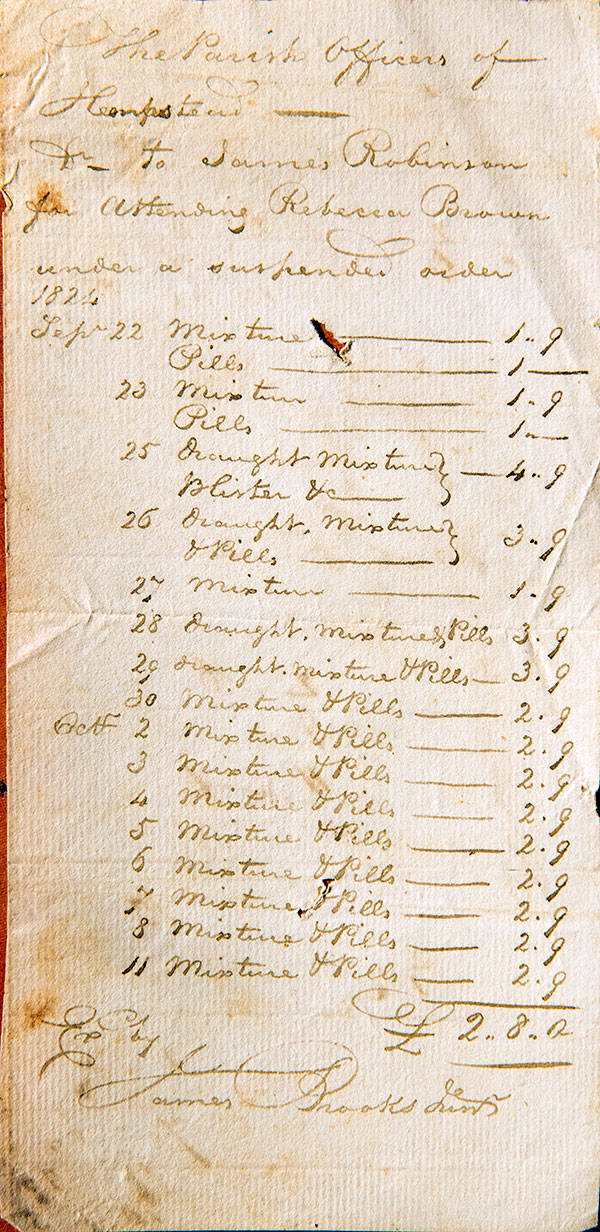 The Parish Officers of
Hempstead —
Dr to James Robinson
for Attending Rebecca Brown
under a suspended order
1824
Sepr 22 Mixture — 1..9
Pills — 1 —
23 Mixture — 1..9
Pills — 1 —
25 Draught Mixture } — 4..9
Blister &c —
26 Draught, Mixture } 3..9
& Pills —
27 Mixture — 1.9
28 Draught, Mixture & Pills 3.9
29 Draught. Mixture & Pills — 3.9
30 Mixture & Pills — 2.9
Octr 2 Mixture & Pills — 2.9
3 Mixture & Pills — 2.9
4 Mixture & Pills — 2.9
5 Mixture & Pills — 2.9
6 Mixture & Pills — 2.9
7 Mixture & Pills — 2.9
8 Mixture & Pills — 2.9
11 Mixture & Pills — 2.9
£ 2..8.
Exd by
James Brooks